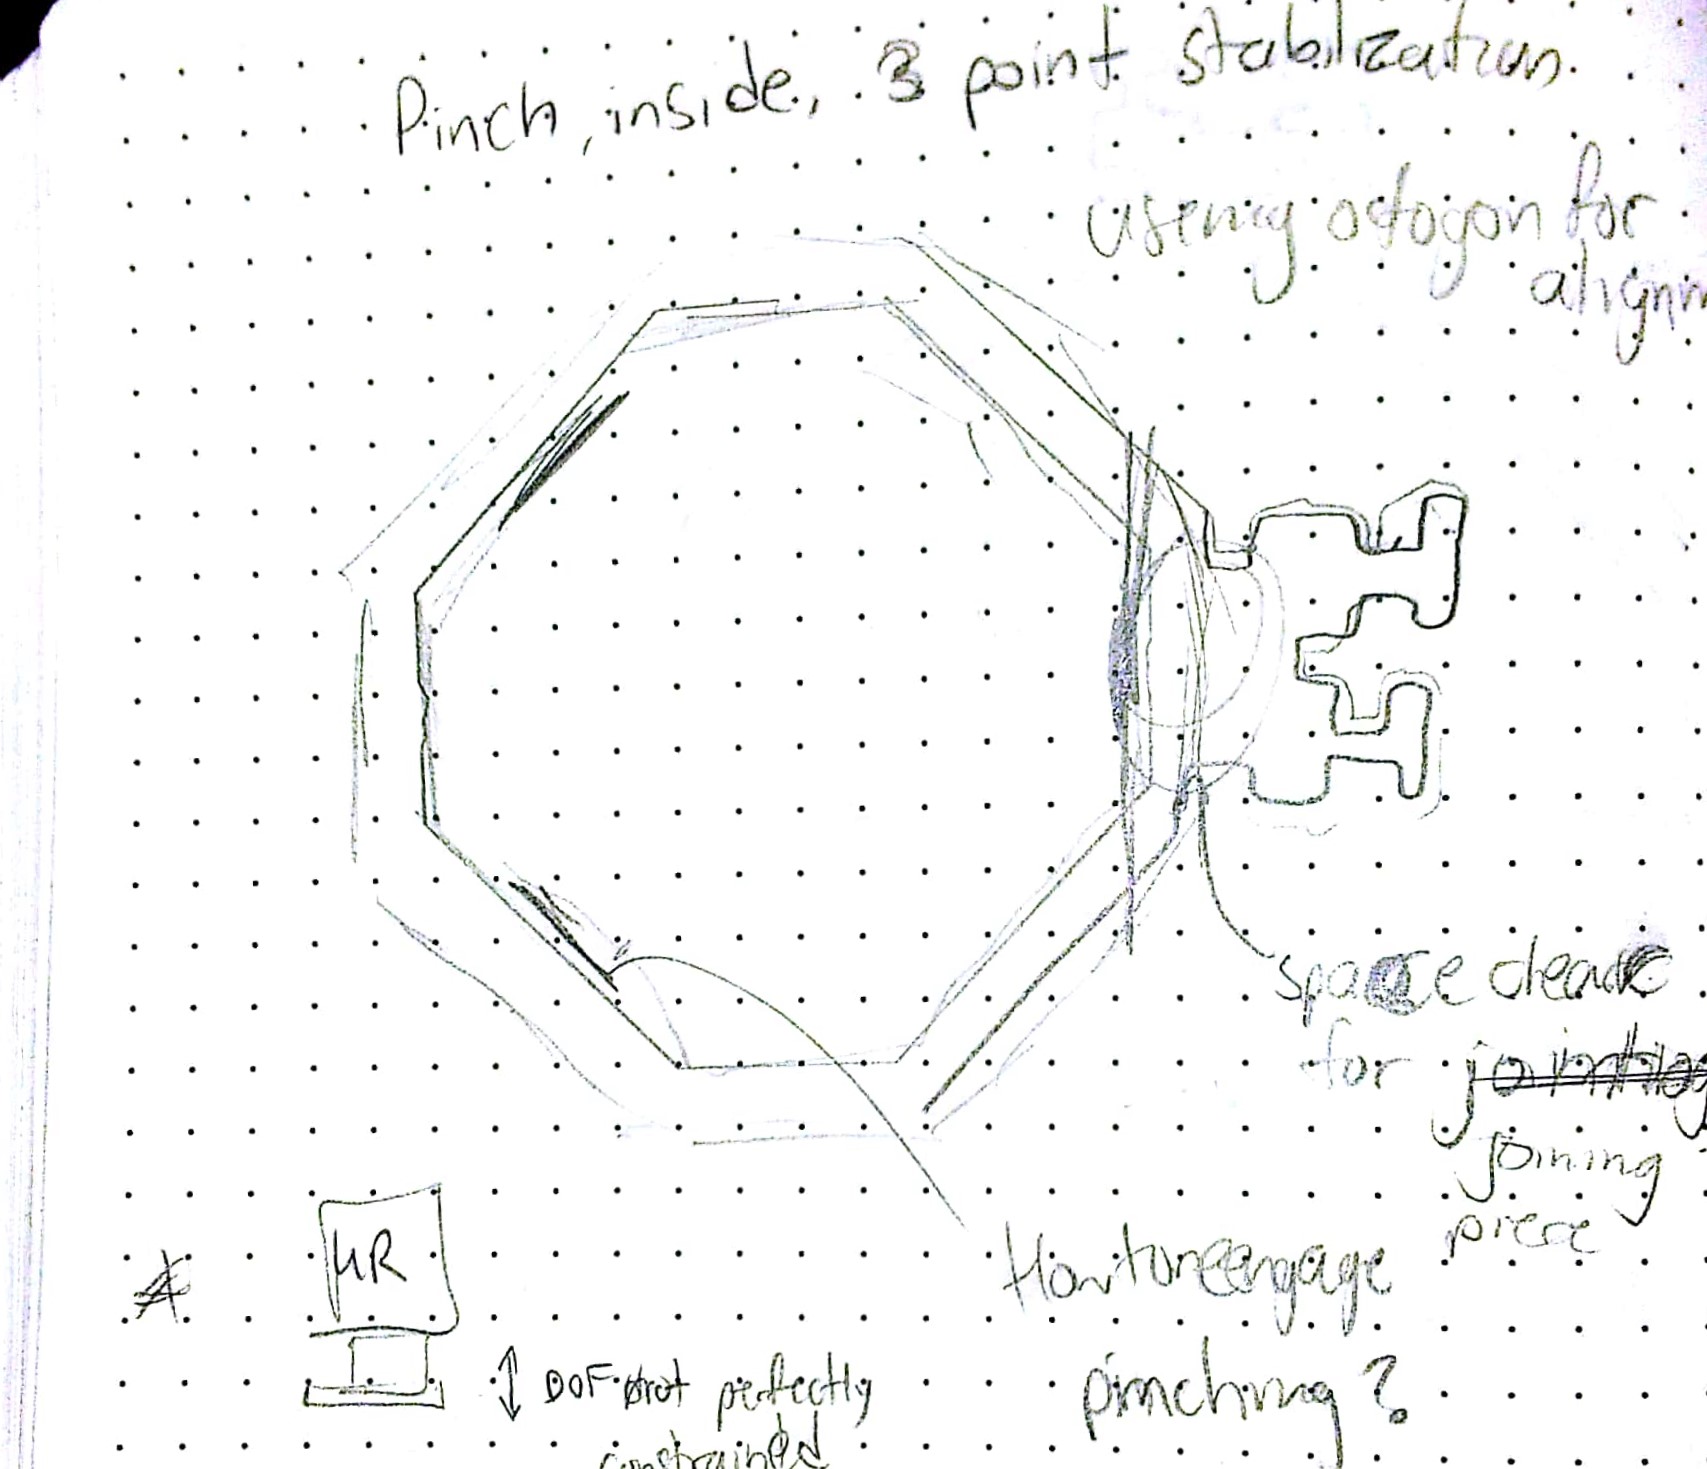 Pinch, inside, 3 point stabilization.
using octogon for
alignm
space clear
for jointing
joining
piece
UR
How to reengage
pinching?
DOF not perfectly
constrained